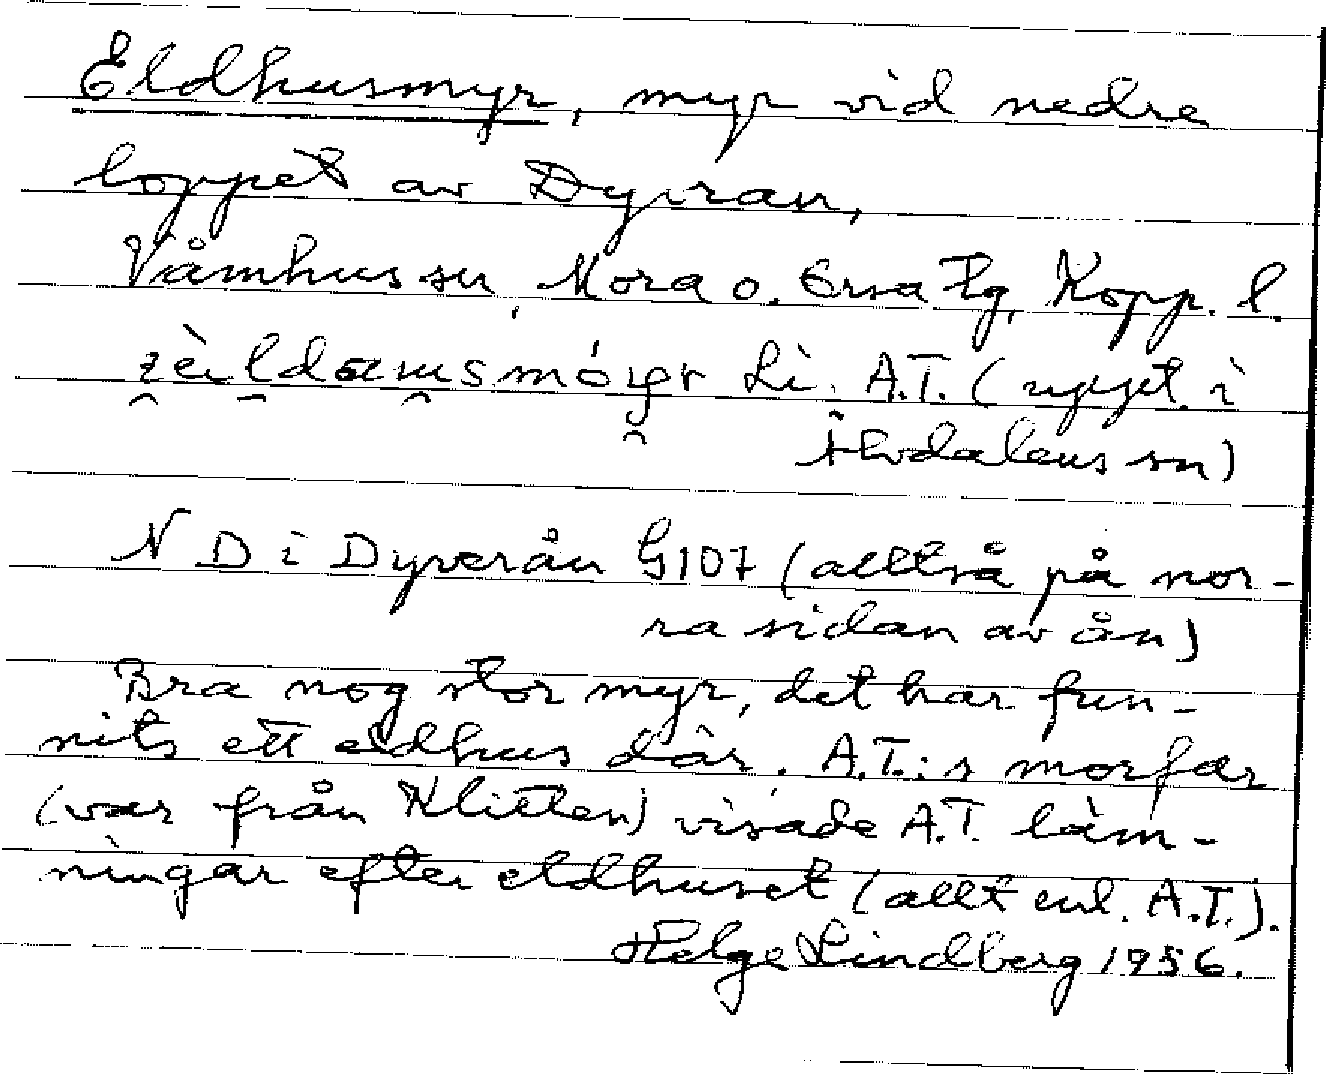 Eldhusmyr, myr vid nedre
loppet av Dyvran,
Våmhus sn, Mora o. Orsa tg, Kopp. l.
Li. A.T. (uppt. i
Älvdalens sn)
N D i Dyverån G107 (alltså på nor-
ra sidan av ån)
Bra nog stor myr, det har fun-
nits ett eldhus där. A.T.:s morfar
(var från Klitten) visade A.T. läm-
ningar efter eldhuset (allt enl. A.T.).
Helge Lindberg 1956.